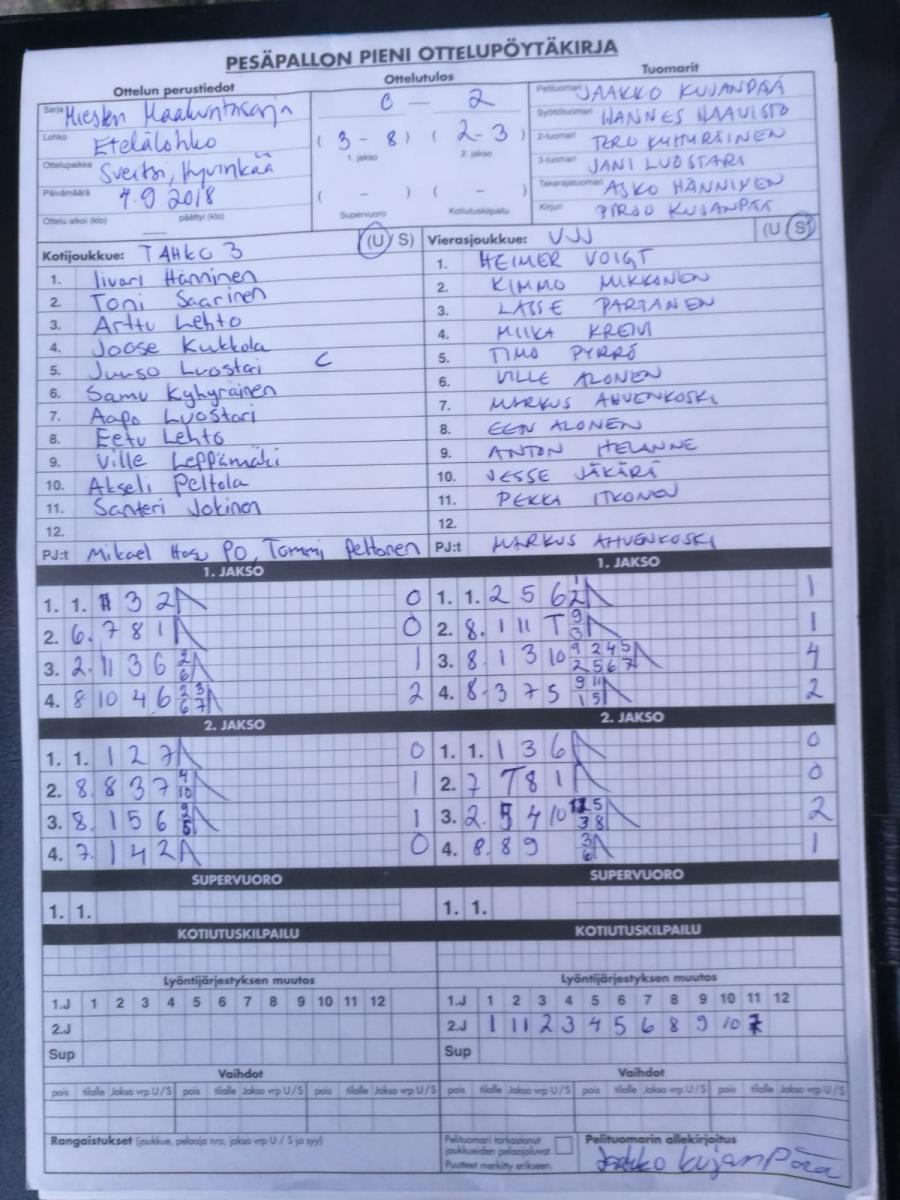 PESÄPALLON PIENI OTTELUPÖYTÄKIRJA
Ottelun perustiedot
Ottelutulos
Tuomarit
Sarja Miesten Maakuntasarja
Lohko Etelälohko
Ottelupaikka Sveitsi, Hyvinkää
Päivämäärä 7.9 2018
Ottelu alkoi (klo) päättyi (klo)
0 - 2
(3 - 8) (2-3)
1. jakso 2. jakso
( - ) ( - )
Supervuoro Kotiutuskilpailu
Pelituomari JAAKKO KUJANPÄÄ
Syöttötuomari HANNES HAAVISTO
2-tuomari TERO KYHYRÄINEN
3-tuomari JANI LUOSTARI
Takarajatuomari ASKO HÄNNINEN
Kirjuri PIRJO KUJANPÄÄ
Kotijoukkue: TAHKO 3 (U/S)
1. Iivari Hänninen
2. Toni Saarinen
3. Arttu Lehto
4. Joose Kukkola
5. Juuso Luostari C
6. Samu Kyhyräinen
7. Aapo Luostari
8. Eetu Lehto
9. Ville Leppämäki
10. Akseli Peltola
11. Santeri Jokinen
12.
PJ:t Mikael PO, Tommi Peltonen
Vierasjoukkue: VJJ (U/S)
1. HEIMER VOIGT
2. KIMMO MIKKONEN
3. LASSE PARTANEN
4. MIIKA KREIVI
5. TIMO PYRRÖ
6. VILLE ALONEN
7. MARKUS AHVENKOSKI
8. EERO ALONEN
9. ANTON HELANNE
10. JESSE JÄKÄRÄ
11. PEKKA ITKONEN
12.
PJ:t MARKUS AHVENKOSKI
1. JAKSO
1. 1. 3 2 0
2. 6. 7 8 1 0
3. 2. 11 3 6 2 6 1
4. 8 10 4 6 2 3 6 7 2
2. JAKSO
1. 1. 1 2 7 0
2. 8. 8 3 7 4 10 1
3. 8. 1 5 6 1
4. 7. 1 4 2 0
SUPERVUORO
1. 1.
KOTIUTUSKILPAILU
Lyöntijärjestyksen muutos
1.J 1 2 3 4 5 6 7 8 9 10 11 12
2.J
Sup
Vaihdot
pois tilalle Jakso vrp U/S pois tilalle Jakso vrp U/S pois tilalle Jakso vrp U/S
Rangaistukset (joukkue, pelaaja nro, jakso vrp U / S ja syy)
1. JAKSO
1. 1. 2 5 6 1 2 1
2. 8. 1 11 T 9 3 1
3. 8. 1 3 10 9 2 4 5 2 5 6 7 4
4. 8. 3 7 5 9 11 1 5 2
2. JAKSO
1. 1. 1 3 6 0
2. 7 T 8 1 0
3. 2. 5 4 10 5 3 8 2
4. 8. 8 9 3 6 1
SUPERVUORO
1. 1.
KOTIUTUSKILPAILU
Lyöntijärjestyksen muutos
1.J 1 2 3 4 5 6 7 8 9 10 11 12
2.J 1 11 2 3 4 5 6 8 9 10 7
Sup
Vaihdot
pois tilalle Jakso vrp U/S pois tilalle Jakso vrp U/S pois tilalle Jakso vrp U/S
Pelituomari tarkastanut
joukkueiden pelaajaluvat
Puutteet merkitty erikseen.
Pelituomarin allekirjoitus
Jaakko Kujanpää